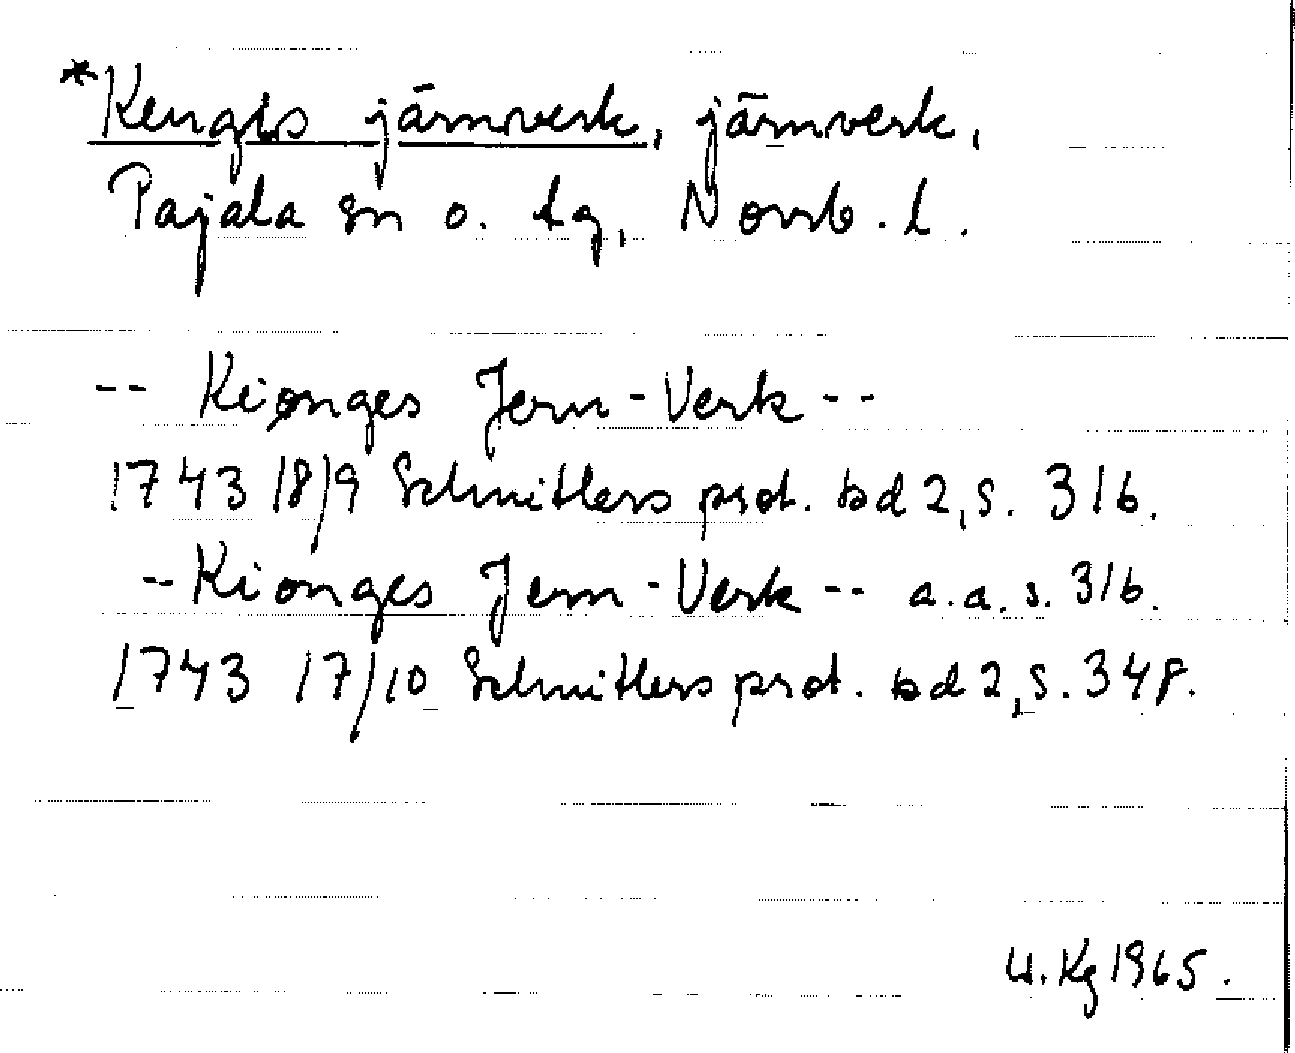 *Kengis järnverk, järnverk,
Pajala sn o. tg, Norrb. l.
-- Kiønges Jern-Verk --
1743 18/9 Schnitlers prot. bd 2, s. 316.
-- Kionges Jern-Verk -- a.a. s. 316.
1743 17/10 Schnitlers prot. bd 2, s. 348.
U. Kg 1965.